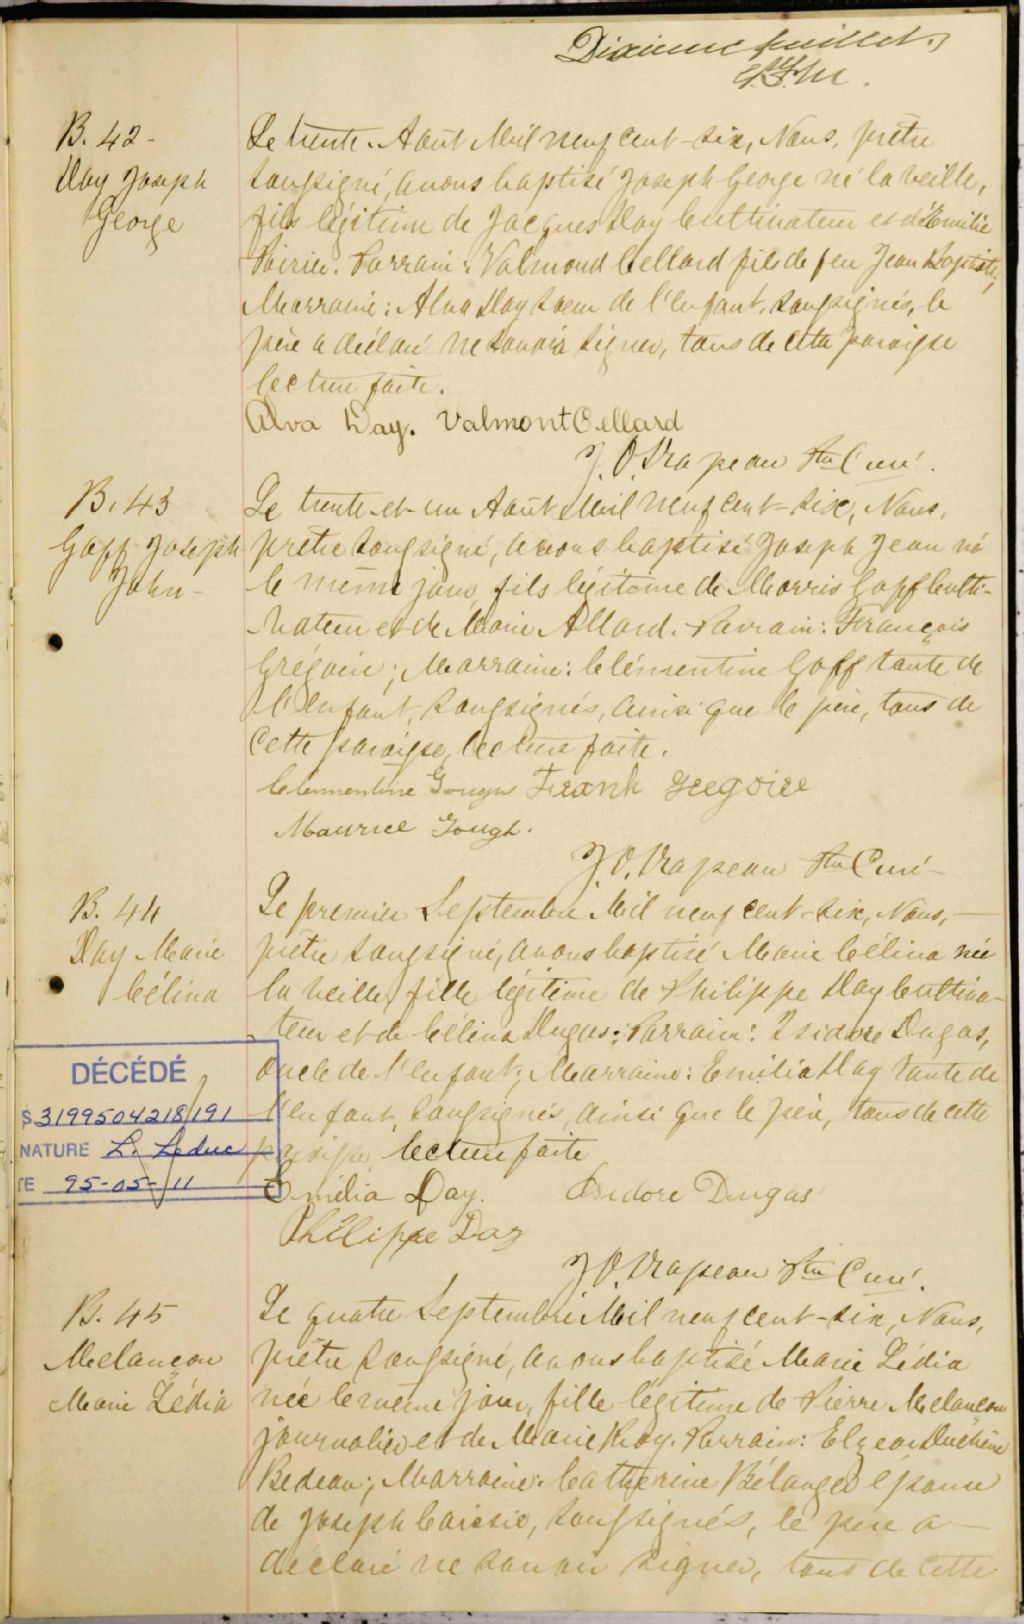 Dixième feuillet.
B. 42 -
Day Joseph
George
Le trente Août Mil neuf cent-six, Nous, prêtre
soussigné, avons baptisé Joseph George né la veille,
fils légitime de Jacques Day Cultivateur et d'Emilie
Poirier. Parrain: Valmond Cellard fils de feu Jean Baptiste,
Marraine: Alva Day soeur de l'enfant, soussignés, le
père a déclaré ne savoir signer, tous de cette paroisse
lecture faite.
Alva Day. Valmont Cellard
J. O. Drapeau Ptre Curé.
B. 43
Goff Joseph
John -
Le trente-et-un Août Mil neuf cent-six, Nous,
prêtre soussigné, avons baptisé Joseph Jean né
le même jour, fils légitime de Morris Goff Culti-
vateur et de Marie Allard. Parrain: François
Grégoire; Marraine: Clémentine Goff tante de
l'enfant, soussignés, ainsi que le père, tous de
cette paroisse, lecture faite.
Clementine Frank Gregoire
Maurice Gough.
J. O. Drapeau Ptre Curé -
B. 44
Day Marie
Célina
Le premier Septembre Mil neuf cent-six, Nous, -
prêtre soussigné, avons baptisé Marie Célina née
la veille, fille légitime de Philippe Day Cultiva-
teur et de Célina Dugas; Parrain: Isidore Dugas,
oncle de l'enfant; Marraine: Emilia Day tante de
l'enfant, soussignés, ainsi que le père, tous de cette
paroisse, lecture faite
Emilia Day. Isidore Dugas
Philippe Day
J. O. Drapeau Ptre Curé.
DÉCÉDÉ
S 3199504218191
NATURE L. Leduc
TE 95-05-11
B. 45
Melançon
Marie Lédia
Le quatre Septembre Mil neuf cent-six, Nous,
prêtre soussigné, avons baptisé Marie Lédia
née le même jour, fille légitime de Pierre Melançon
journalier et de Marie Roy. Parrain: Elzear Duchêne
Bedeau; Marraine: Catherine Bélanger épouse
de Joseph Caissie, soussignés, le père a -
déclaré ne savoir signer, tous de cette